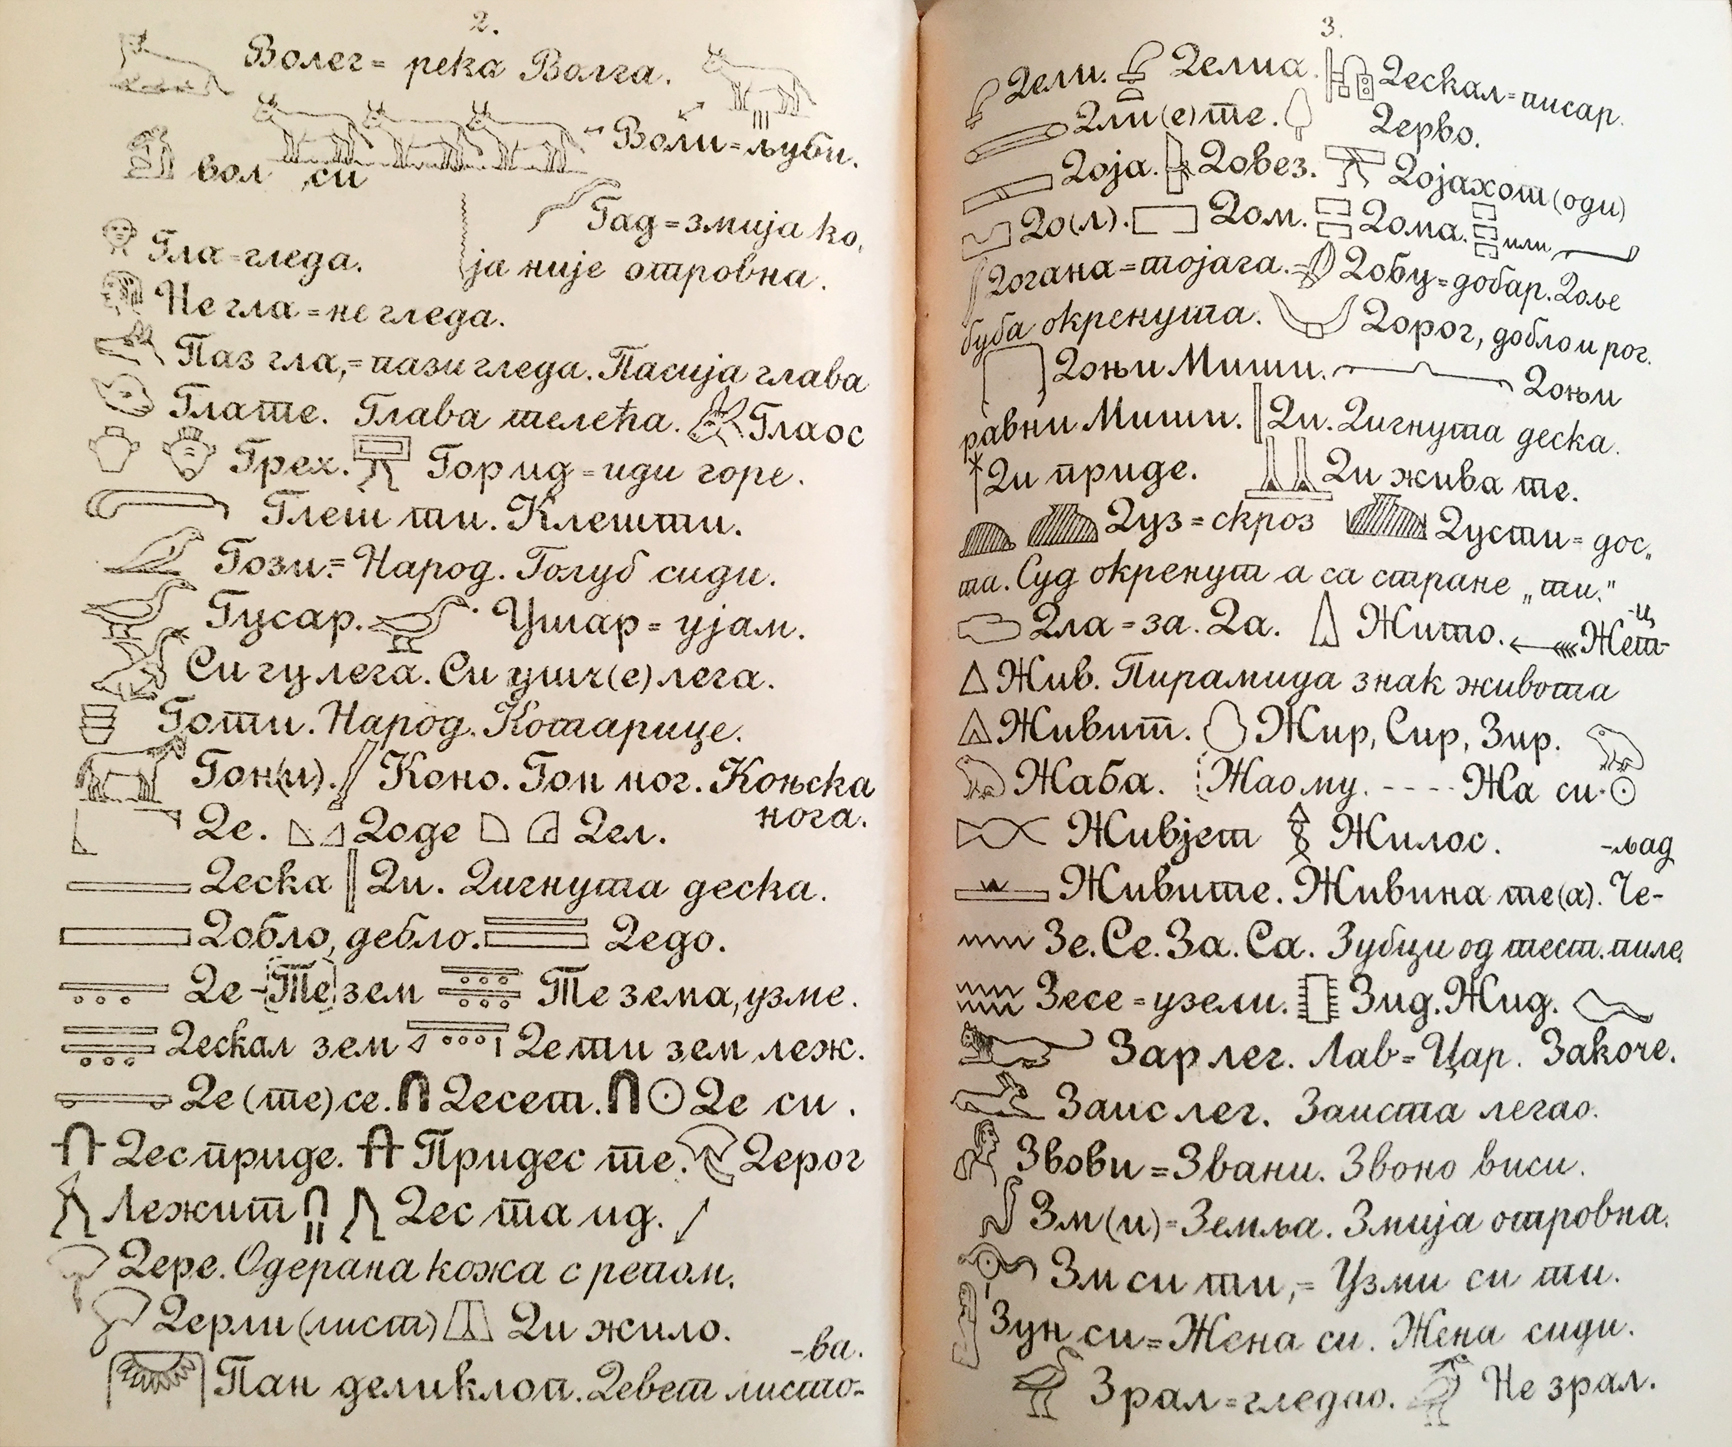 2.
Волег = река Волга.
Воли = љуби.
вол си
Гад = змија ко,
Гла = гледа.
ја није отровна.
Не гла = не гледа.
Паз гла, = пази гледа. Пасија глава
Глате. Глава телећа. Глаос
Грех. Гор ид = иди горе.
Глеш ти. Клешти.
Гози = Народ. Голуб сиди.
Гусар. Ушар = ујам.
Си гу лега. Си ушч(е) лега.
Готи. Народ. Котарице.
Гон(и). Коно. Гон ног. Коњска
нога.
Де. Доде Дел.
Деска Ди. Дигнута деска.
Добло, дебло. Дедо.
Де-(Те) зем Те зема, узме.
Дескал зем Дети зем леж.
Де (те) се. Десет. Де си.
Дес приде. Придес те. Дерог
Лежит Дес та ид.
Дере. Одерана кожа с репом.
Дерли (лист) Ди жило.
-ва.
Пан дели клоп. Девет листо-
3.
Дели. Делиа. Дескал = писар.
Дли(е)те. Дерво.
Доја. Довез. Дојахот (оди)
До(л). Дом. Дома. или
Догана = тојага. Добу = добар. Доље
буба окренута. Дорог, добло и рог.
Доњи Миши. Доњи
равни Миши. Ди. Дигнута деска.
Ди приде. Ди жива те.
Дуз = скроз Дусти = дос,
та. Суд окренут а са стране „ти."
-ц
Дла = за. Да. Жито. Жет-
Жив. Пирамида знак живота
Живит. Жир, Сир, Зир.
Жаба. Жаому. - - - - Жа си.
Живјет Жилос.
-љад
Живите. Живина те(а). Че-
Зе. Се. За. Са. Зубци од тест. пиле.
Зесе = узели. Зид. Жид.
Зар лег. Лав = Цар. Закоче.
Заис лег. Заиста легао.
Звови = Звани. Звоно виси.
Зм(и) = Земља. Змија отровна.
Зм си ти, = Узми си ти.
Зун си = Жена си. Жена сиди.
Зрал = гледао. Не зрал.